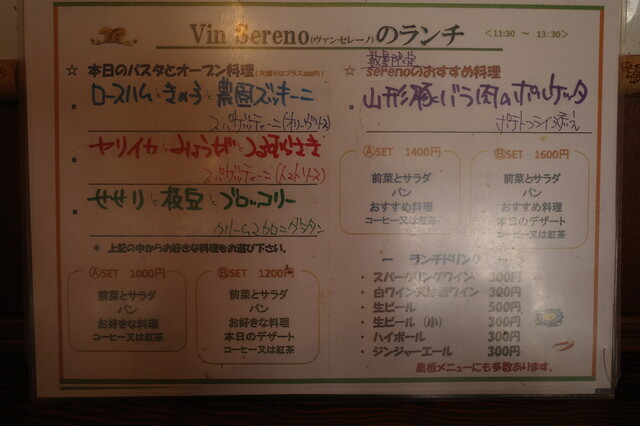 Vin Sereno(ヴァンセレーノ)のランチ <11:30 ~ 13:30>
☆ 本日のパスタとオーブン料理(大盛りはプラス200円!)
ロースハムときゅうりと農園ズッキーニ
スパゲッティーニ(オリーブソース)
ヤリイカとみょうがと
スパゲッティーニ(トマトソース)
せせりと枝豆とブロッコリー
クリームマカロニグラタン
* 上記の中からお好きな料理をお選び下さい。
ⒶSET 1000円
前菜とサラダ
パン
お好きな料理
コーヒー又は紅茶
ⒷSET 1200円
前菜とサラダ
パン
お好きな料理
本日のデザート
コーヒー又は紅茶
数量限定
☆ serenoのおすすめ料理
山形豚バラ肉のポルケッタ
ポテトフライ添え
ⒶSET 1400円
前菜とサラダ
パン
おすすめ料理
コーヒー又は紅茶
ⒷSET 1600円
前菜とサラダ
パン
おすすめ料理
本日のデザート
コーヒー又は紅茶
ー ランチドリンク ー
・ スパークリングワイン 300円
・ 白ワイン又は赤ワイン 300円
・ 生ビール 500円
・ 生ビール (小) 300円
・ ハイボール 300円
・ ジンジャーエール 300円
黒板メニューにも多数あります。